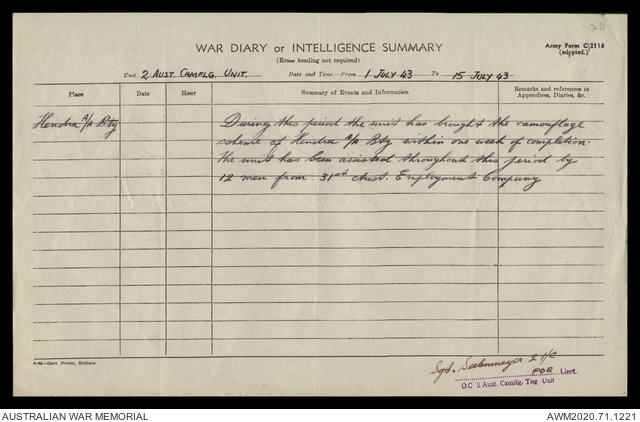 20
WAR DIARY or INTELLIGENCE SUMMARY
Army Form C 2118
(adapted.)
(Erase heading not required)
Unit 2 AUST. CAMFLG. UNIT. Date and Time—From 1 JULY 43 To 15 JULY 43
Place Date Hour Summary of Events and Information Remarks and references to
Appendices, Diaries, &c.
Hendra A/A Bty During this period the unit has brought the camouflage
scheme of Hendra A/A Bty within one week of completion.
The unit has been assisted throughout this period by
12 men from 31st Aust. Employment Company
4-43—Govt. Printer, Brisbane
Sgt. Seelenmeyer 2 I/C
FOR Lieut.
O.C 2 Aust. Camflg. Tng Unit
AUSTRALIAN WAR MEMORIAL AWM2020.71.1221